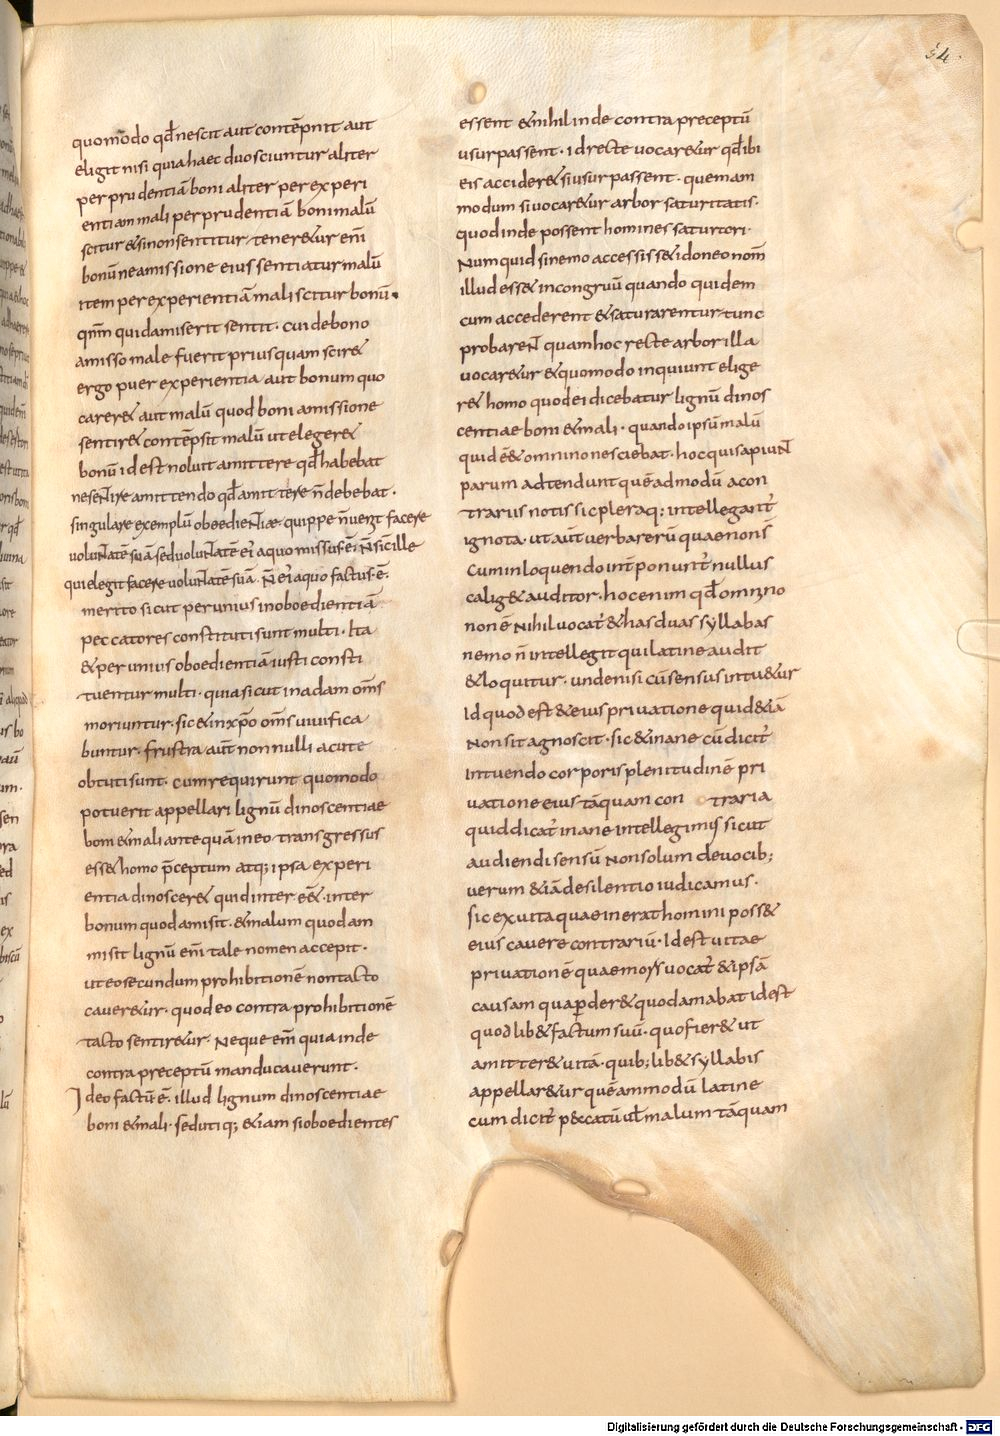 54.
quomodo qđ nescit aut contēpnit aut
eligit nisi quia haec duo sciuntur aliter
per prudentiā boni aliter per experi
entiam mali per prudentiā boni malū
scitur &si non sentitur tener&ur eni͞
bonū ne amissione eius sentiatur malū
item per experientiā mali scitur bonū.
qnm̄ quid amiserit sentit. cui de bono
amisso male fuerit priusquam scir&
ergo puer experientia aut bonum quo
carer& aut malū quod boni amissione
sentir& contēpsit malū ut eleger&
bonū id est noluit amittere qđ habebat
ne sentire amittendo qđ amittere n̄ debebat.
singulare exemplū oboedientiae quippe n̄ uenit facere
voluntatē suā sed voluntatē ei' a quo missus ē. n̄ sic ille
qui elegit facere voluntatē suā. N̄ ei' a quo factus ē.
merito sicut per unius inoboedientiā
peccatores constituti sunt multi. Ita
&per unius oboedientiā iusti consti
tuentur multi. quia sicut in adam om̄s
moriuntur. sic & in xp̄o om̄s uiuifica
buntur. frustra aūt non nulli acute
obtuti sunt. cum requirunt quomodo
potuerit appellari lignū dinoscentiae
boni &mali ante quā in eo transgressus
ess& homo p̄ceptum atq; ipsa experi
entia dinoscer& quid inter e͞e&. inter
bonum quod amisit. & malum quod am
misit lignū eni͞ tale nomen accepit.
ut eo secundum prohibitionē non tacto
cauer&ur. quod eo contra prohibitionē
tacto sentir&ur. Neque eni͞ quia inde
contra preceptū manducauerunt.
Ideo factū ē. illud lignum dinoscentiae
boni &mali. sed utiq; &iam si oboedientes
essent &nihil inde contra preceptū
usurpassent. id recte uocar&ur qđ ibi
eis accider& si usurpassent. quemam
modum si uocar&ur arbor saturitatis.
quod inde possent homines saturtori.
Numquid si nemo accessiss& idoneo nom̄
illud ess& incongruū quando quidem
cum accederent &saturarentur tunc
probarent quam hoc recte arbor illa
uocar&ur &quomodo inquiunt elige
r& homo quod ei dicebatur lignū dinos
centiae boni &mali. quando ipsū malū
quid ē& omnino nesciebat. hoc qui sapiunt
parum adtendunt quēadmodū a con
trariis notis sic pleraq; intellegant'
ignota. ut aūt uerba rerū quae non s̄
cum in loquendo int' ponunt' nullus
calig& auditor. hoc enim qđ omnino
non ē Nihil uocat' & has duas syllabas
nemo n̄ intellegit qui latine audit
&loquitur. unde nisi cū sensus intu&ur
Id quod est &eius priuatione quid &iā
Non sit agnoscit. sic &inane cū dicit'
intuendo corporis plenitudinē pri
uatione eius tāquam con traria
quid dicat' inane intellegimus sicut
audiendi sensū Non solum de uocib;
uerum &iā de silentio iudicamus.
sic ex uita quae inerat homini poss&
eius cauere contrariū. Id est uitae
priuationē quae mors uocat' &ipsā
causam qua perder& quod amabat id est
quod lib& factum suū. quo fier& ut
amitter& uitā. quib; lib& syllabis
appellar&ur quēammodū latine
cum dicit' peccatū uł malum tāquam
Digitalisierung gefördert durch die Deutsche Forschungsgemeinschaft - DFG